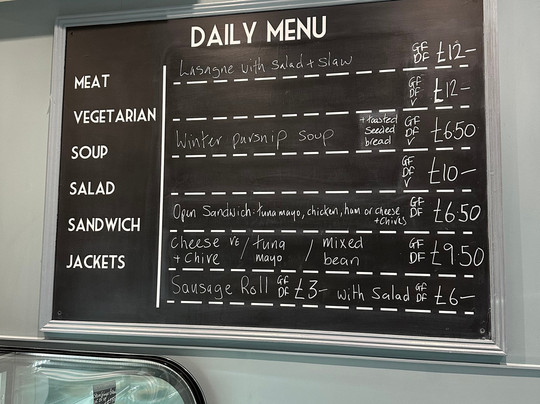 DAILY MENU
MEAT Lasagne with Salad + Slaw GF DF £12-
VEGETARIAN GF DF V £12-
SOUP Winter parsnip soup + toasted seeded bread GF DF V £6.50
SALAD GF DF V £10-
SANDWICH Open Sandwich: tuna mayo, chicken, ham or cheese + chives GF DF £6.50
JACKETS Cheese + Chive / tuna mayo / mixed bean GF DF £9.50
Sausage Roll GF DF £3- with Salad GF DF £6-